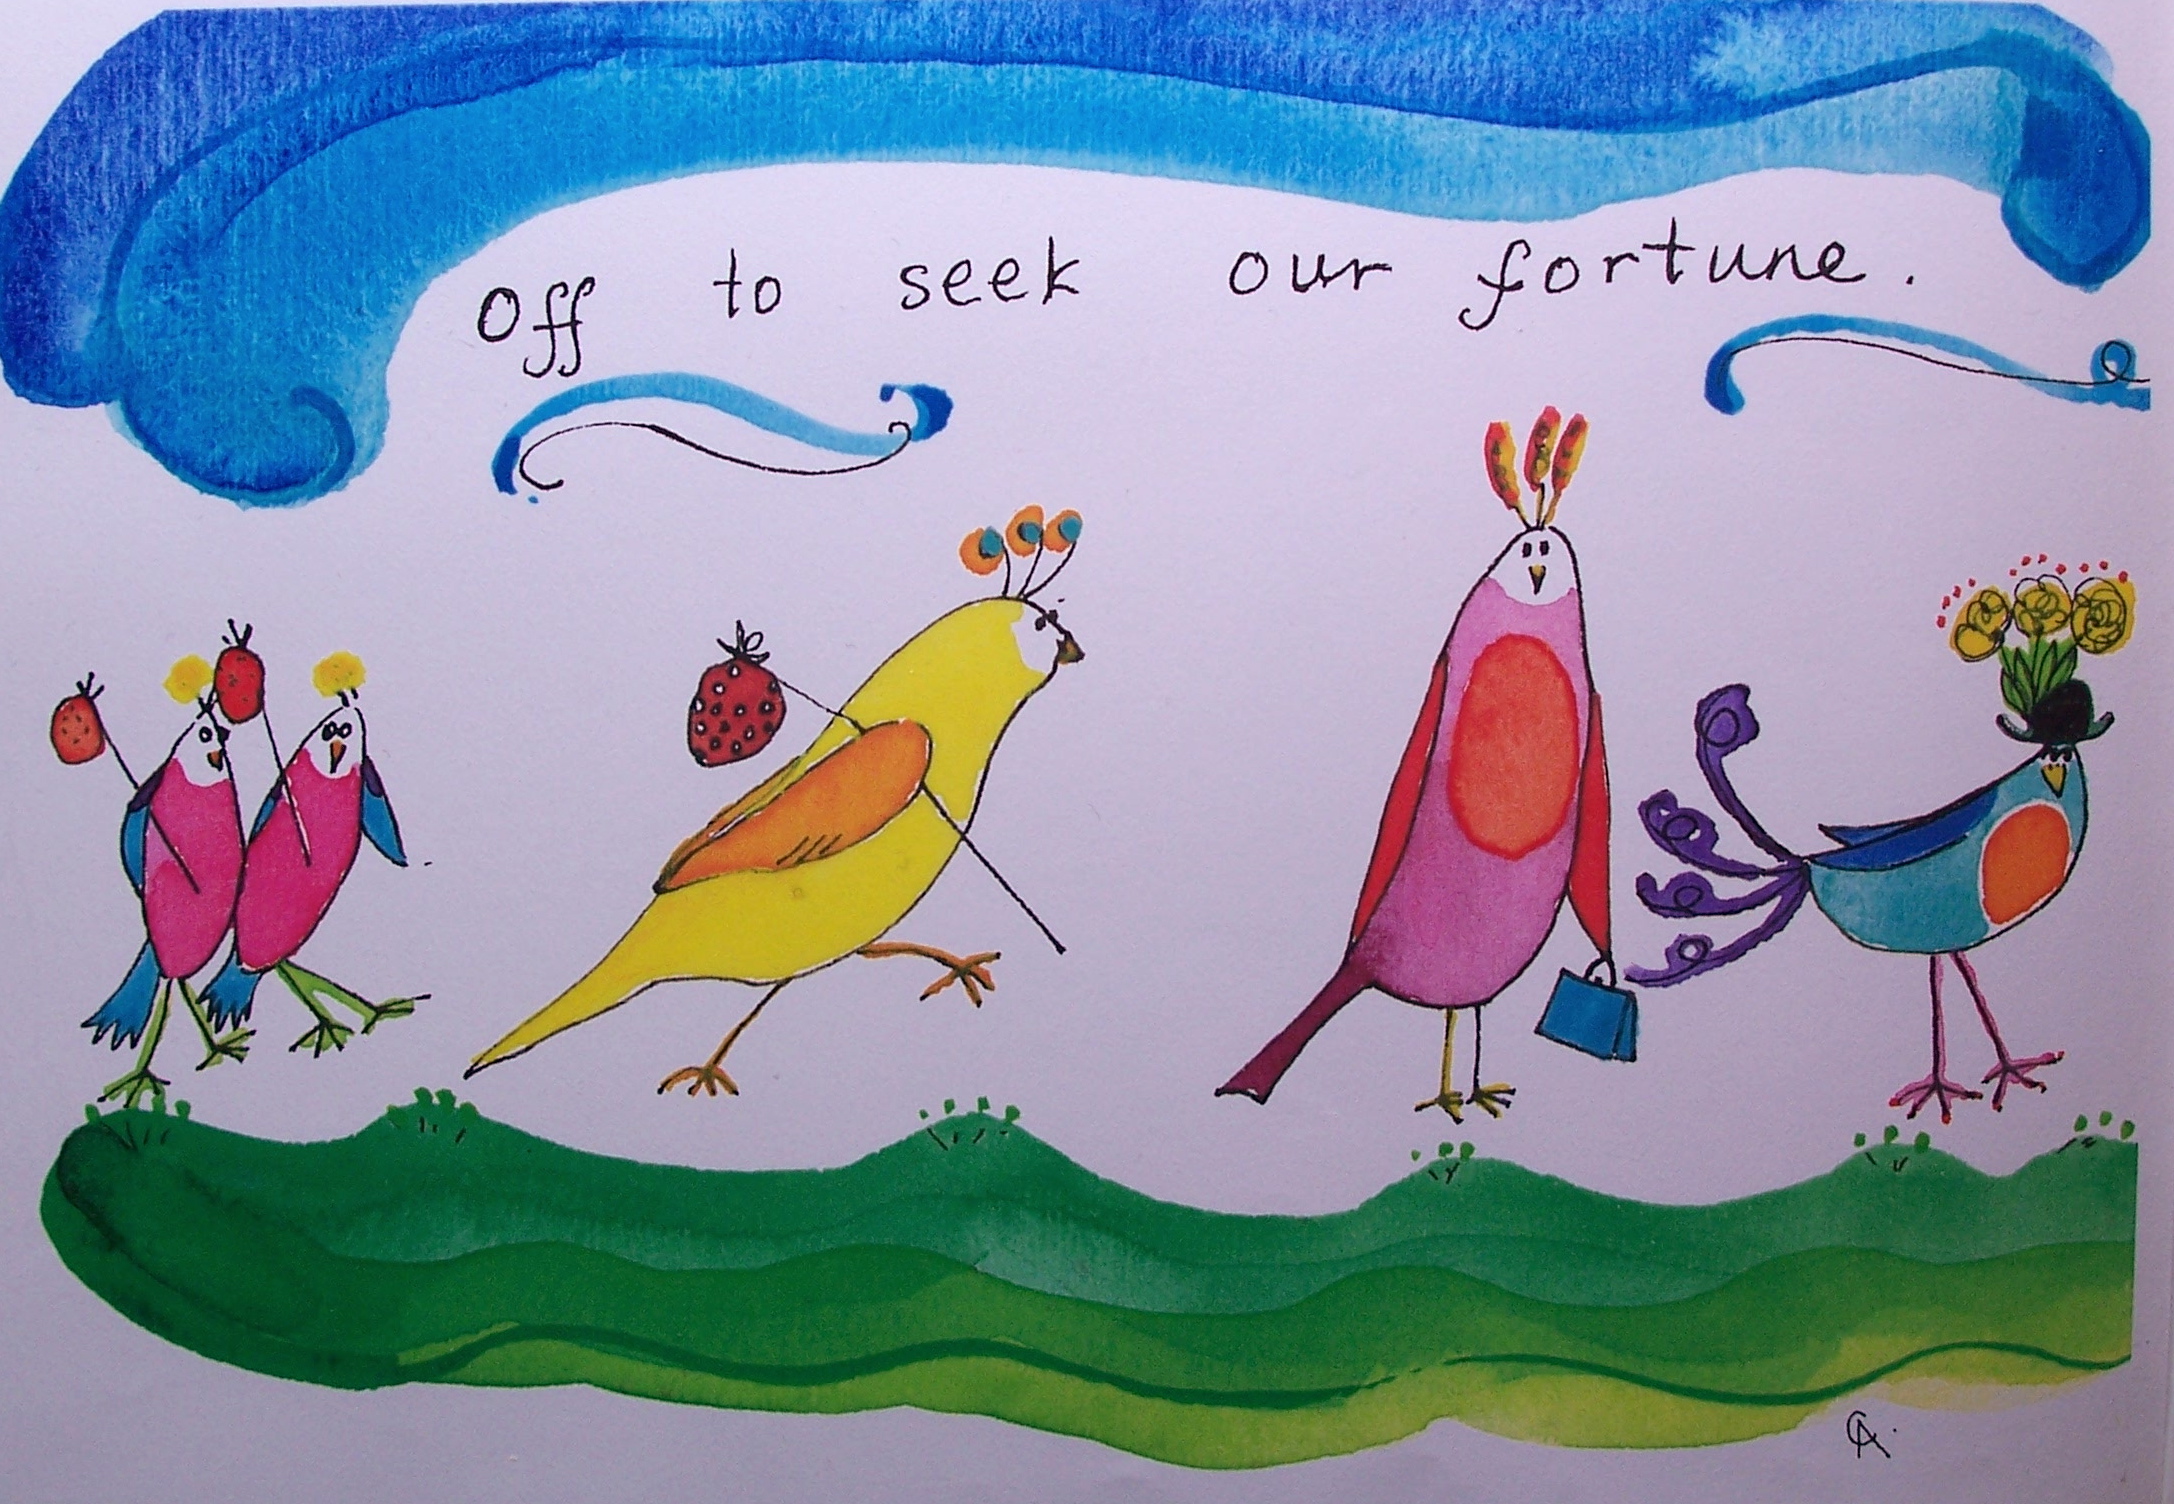 Off to seek our fortune.
CA.